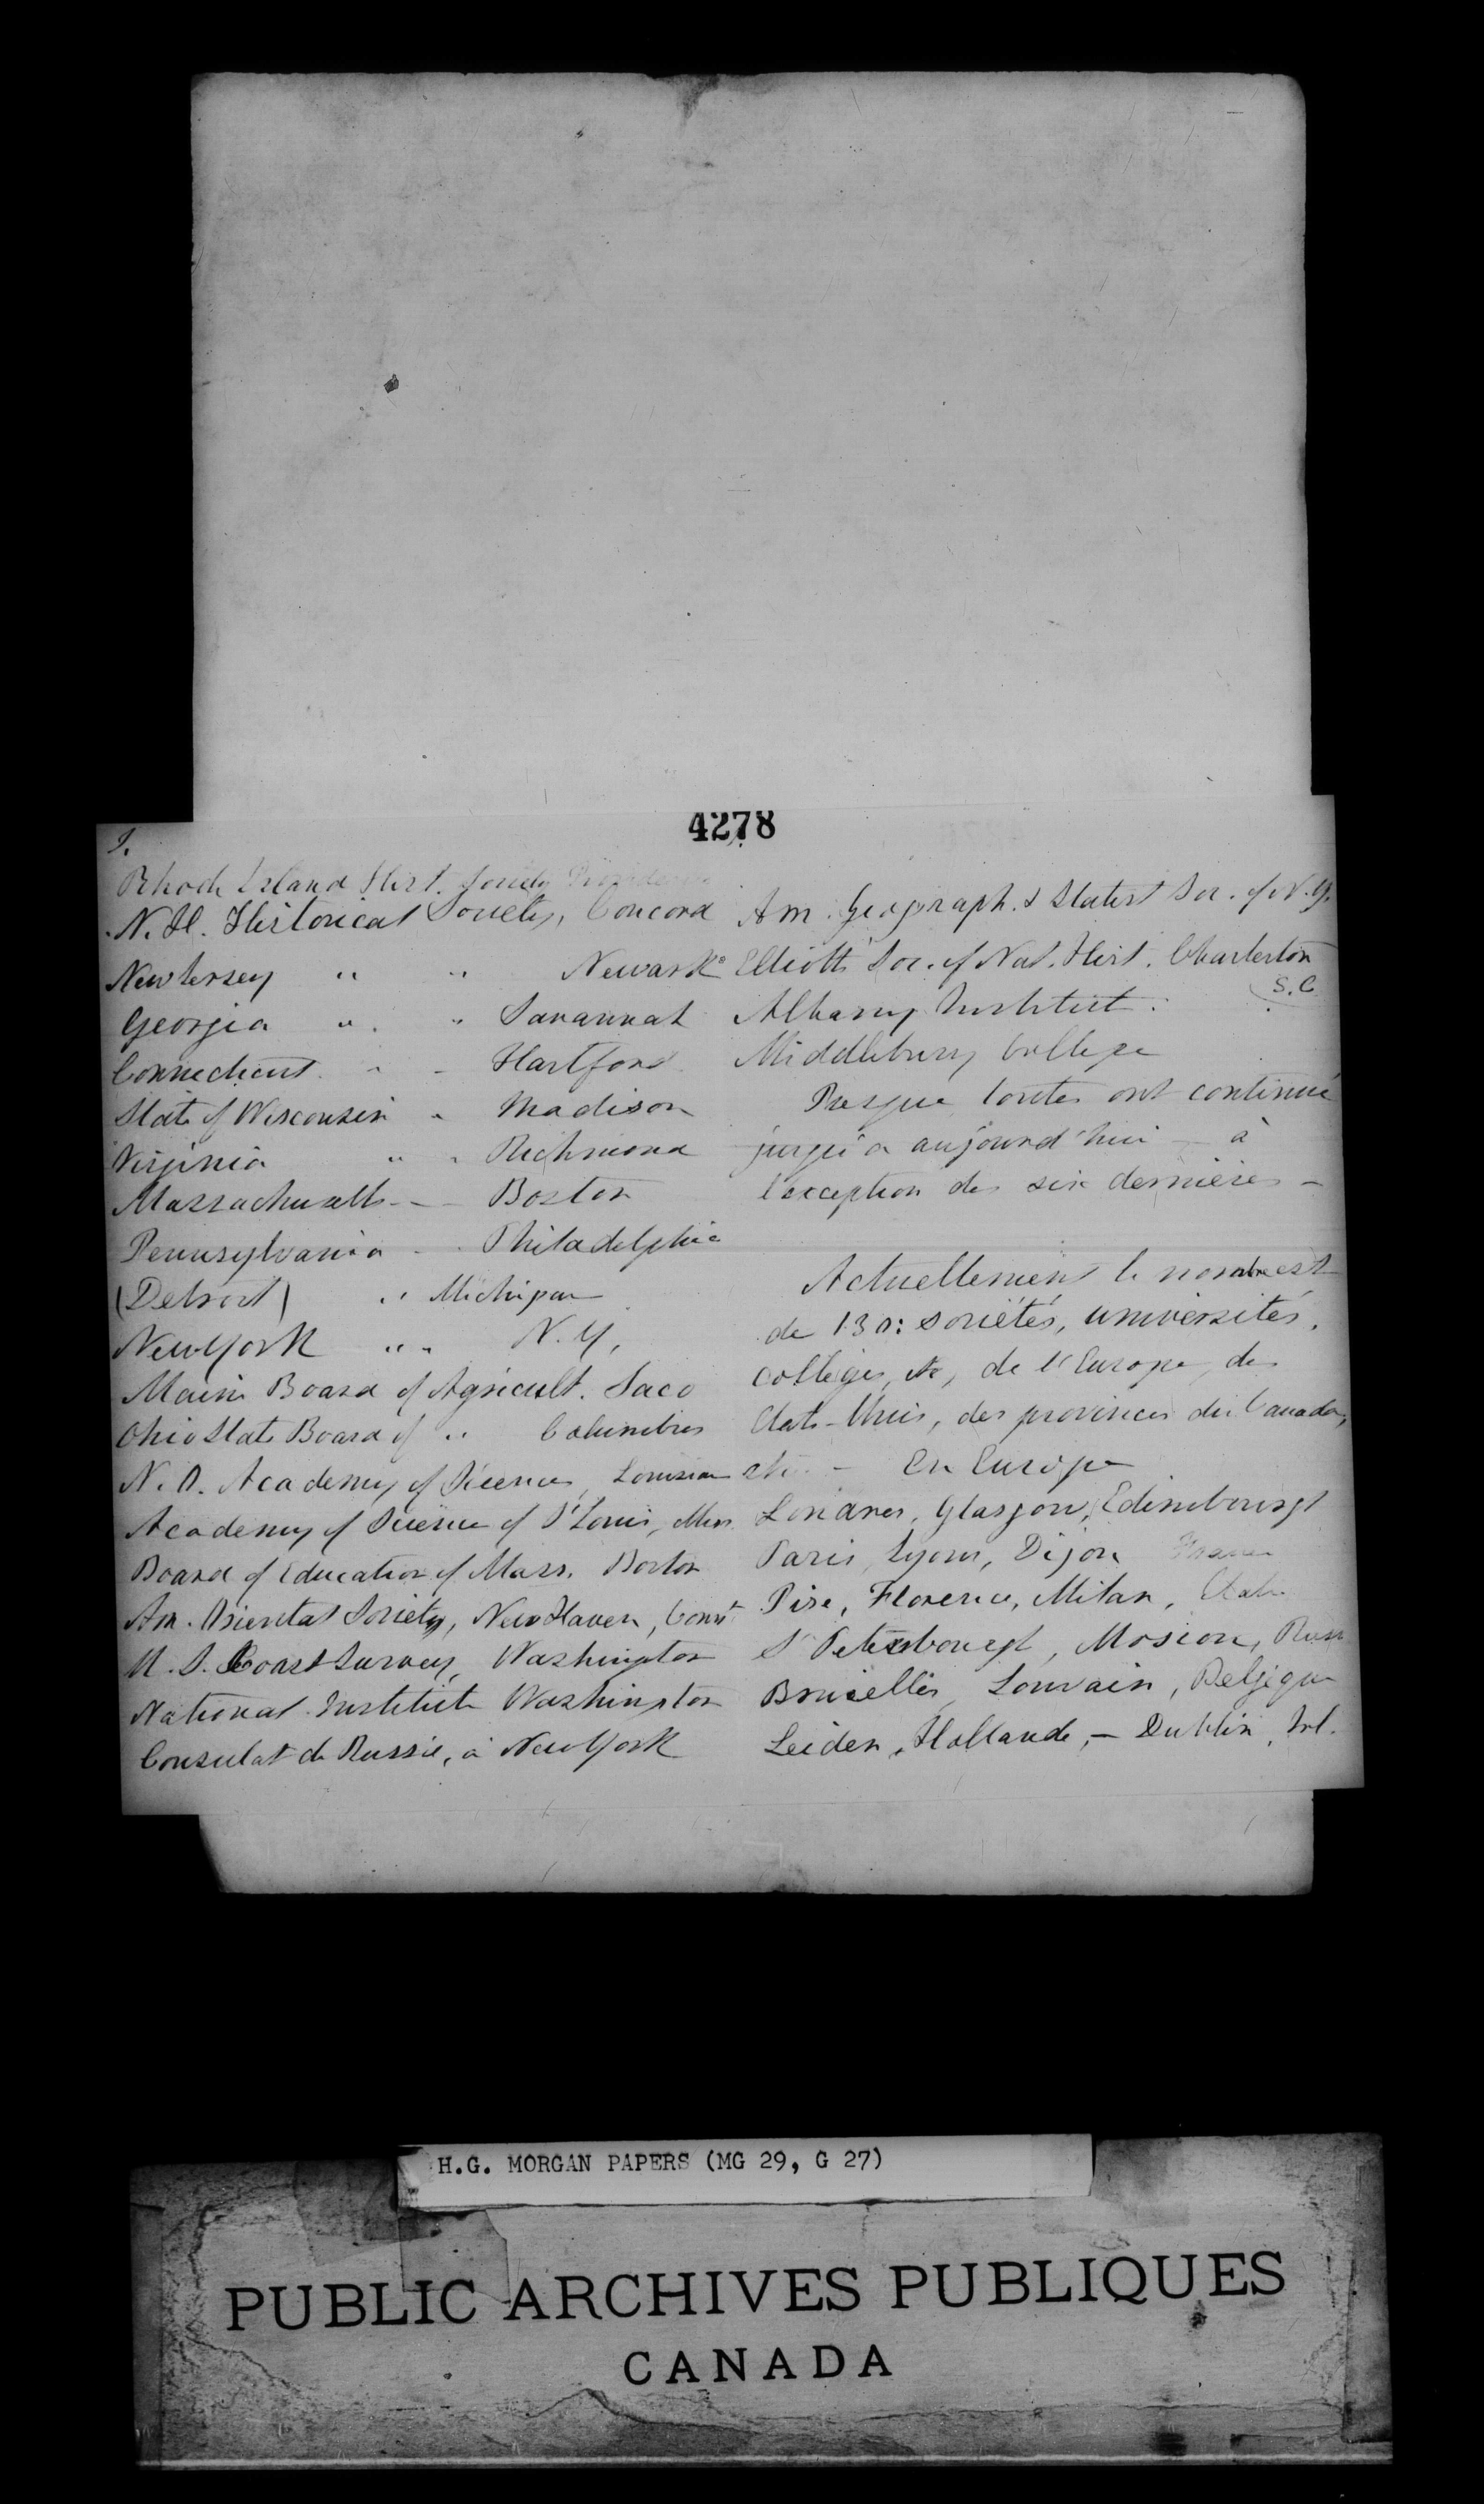 4278
2.
Rhode Island Hist. Society Providence
N.H. Historical Society, Concord
New Jersey " " Newark
Georgia " " Savannah
Connecticut " " Hartford
State of Wisconsin " Madison
Virginia " " Richmond
Massachusetts - - Boston
Pennsylvania - - Philadelphia
(Detroit) " Michigan
New York " " N.Y.
Maine Board of Agricult. Saco
Ohio State Board of " Columbus
N.O. Academy of Sciences, Louisian
Academy of Science of St Louis, Miss.
Board of Education of Mass. Boston
Am. Oriental Society, New Haven, Connt
U.S. Coast Survey, Washington
National Institute Washington
Consulat de Russie, à New York
Am. Geograph. & Statist Soc. of N.Y.
Elliott Soc. of Nat. Hist. Charleston
S.C
Albany Institut.
Middlebury College
Presque toutes ont continué
jusqu'à aujourd'hui — à
l'exception des six dernières —
Actuellement le nombre est
de 130: sociétés, universités,
collèges, etc, de l'Europe, des
Etats-Unis, des provinces du Canada,
etc. - En Europe
Londres, Glasgow, Edimbourgh
Paris, Lyons, Dijon France
Pise, Florence, Milan, Itali
St Petersbourgh, Moscou, Russ
Bruxelles, Louvain, Belgique
Leiden, Hollande, — Dublin, Irl.
H.G. MORGAN PAPERS (MG 29, G 27)
PUBLIC ARCHIVES PUBLIQUES
CANADA